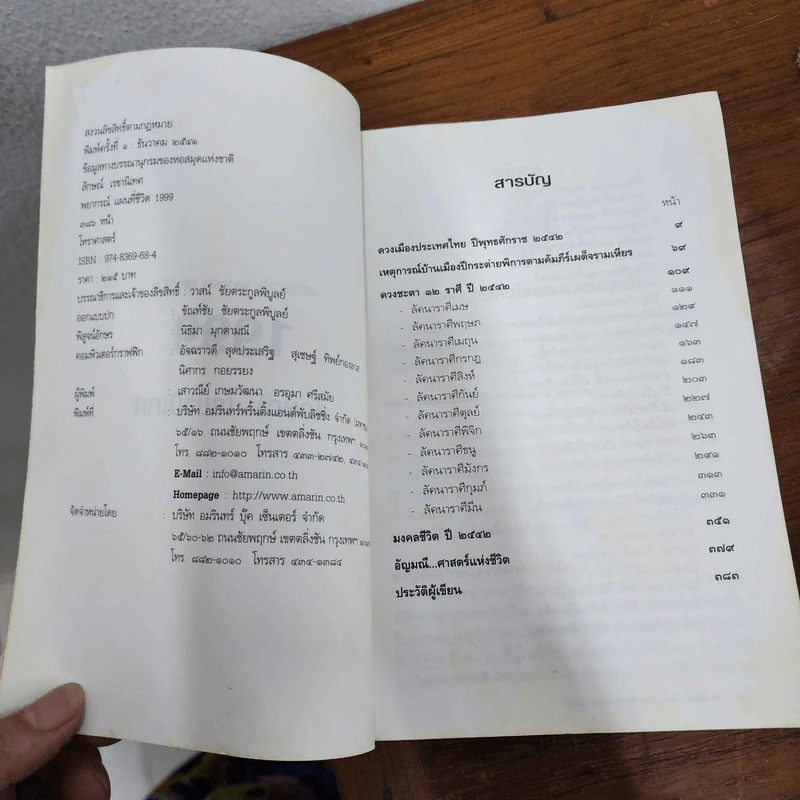 สงวนลิขสิทธิ์ตามกฎหมาย
พิมพ์ครั้งที่ ๑ : ธันวาคม ๒๕๔๑
ข้อมูลทางบรรณานุกรมของหอสมุดแห่งชาติ
ลักษณ์ เรขานิเทศ
พยากรณ์ แผนที่ชีวิต 1999
๓๘๖ หน้า
โหราศาสตร์
ISBN : 974-8369-68-4
ราคา : ๒๑๕ บาท
บรรณาธิการและเจ้าของลิขสิทธิ์ : วาสน์ ชัยตระกูลพิบูลย์
ออกแบบปก : ขัณฑ์ชัย ชัยตระกูลพิบูลย์
พิสูจน์อักษร : นิธิมา มุกดามณี
คอมพิวเตอร์กราฟฟิก : อัจฉราวดี สุดประเสริฐ สุเชษฐ์ ทิพย์ทอง
นิศากร กอยรรยง
ผู้พิมพ์ : เสาวณีย์ เกษมวัฒนา อรอุมา ศรีสมัย
พิมพ์ที่ : บริษัท อมรินทร์พริ้นติ้งแอนด์พับลิชชิ่ง จำกัด
๖๕/๑๖ ถนนชัยพฤกษ์ เขตตลิ่งชัน กรุงเทพฯ
โทร. ๘๘๒-๑๐๑๐ โทรสาร ๔๓๓-๒๗๔๒,
E-Mail : info@amarin.co.th
Homepage : http://www.amarin.co.th
จัดจำหน่ายโดย : บริษัท อมรินทร์ บุ๊ค เซ็นเตอร์ จำกัด
๖๕/๖๐-๖๒ ถนนชัยพฤกษ์ เขตตลิ่งชัน กรุงเทพฯ
โทร. ๘๘๒-๑๐๑๐ โทรสาร ๔๓๔-๑๓๘๔
สารบัญ
หน้า
ดวงเมืองประเทศไทย ปีพุทธศักราช ๒๕๔๒ ๙
เหตุการณ์บ้านเมืองปีกระต่ายพิการตามคัมภีร์เผด็จรามเหียร ๖๙
ดวงชะตา ๑๒ ราศี ปี ๒๕๔๒ ๑๐๙
- ลัคนาราศีเมษ ๑๑๑
- ลัคนาราศีพฤษภ ๑๒๙
- ลัคนาราศีเมถุน ๑๔๗
- ลัคนาราศีกรกฎ ๑๖๓
- ลัคนาราศีสิงห์ ๑๘๓
- ลัคนาราศีกันย์ ๒๐๓
- ลัคนาราศีตุลย์ ๒๒๗
- ลัคนาราศีพิจิก ๒๔๓
- ลัคนาราศีธนู ๒๖๓
- ลัคนาราศีมังกร ๒๙๑
- ลัคนาราศีกุมภ์ ๓๑๓
- ลัคนาราศีมีน ๓๓๑
มงคลชีวิต ปี ๒๕๔๒ ๓๕๑
อัญมณี...ศาสตร์แห่งชีวิต ๓๗๙
ประวัติผู้เขียน ๓๘๓